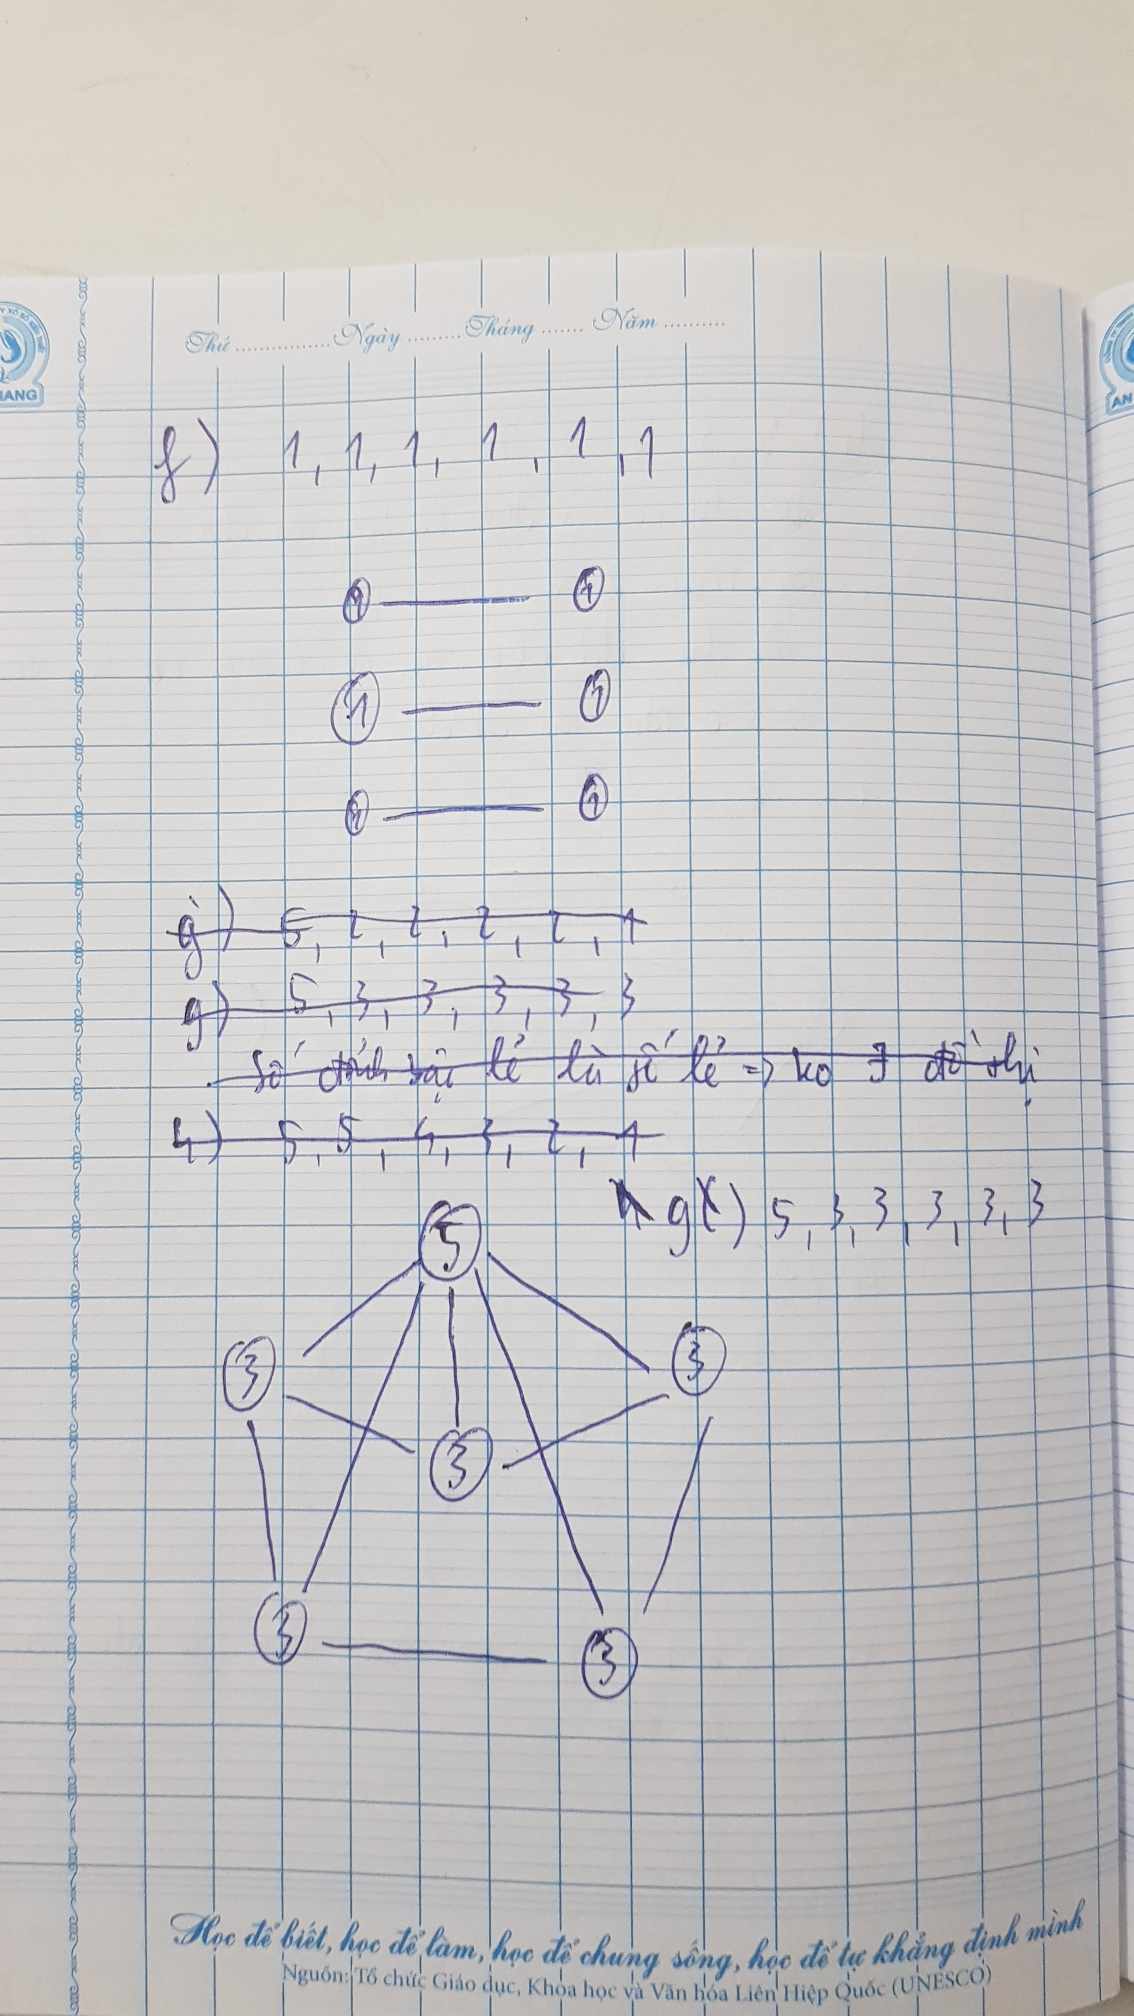 Thứ ................ Ngày ......... Tháng ....... Năm ..........
ANG
AN
f) 1, 1, 1, 1, 1, 1
1 1
1 1
1 1
g) 5, 2, 2, 2, 2, 1
g) 5, 3, 3, 3, 3, 3
Số đỉnh bậc lẻ là số lẻ => ko ∃ đồ thị
h) 5, 5, 4, 3, 2, 1
g) 5, 3, 3, 3, 3, 3
5
3 3
3
3 3
Học để biết, học để làm, học để chung sống, học để tự khẳng định mình
Nguồn: Tổ chức Giáo dục, Khoa học và Văn hóa Liên Hiệp Quốc (UNESCO)